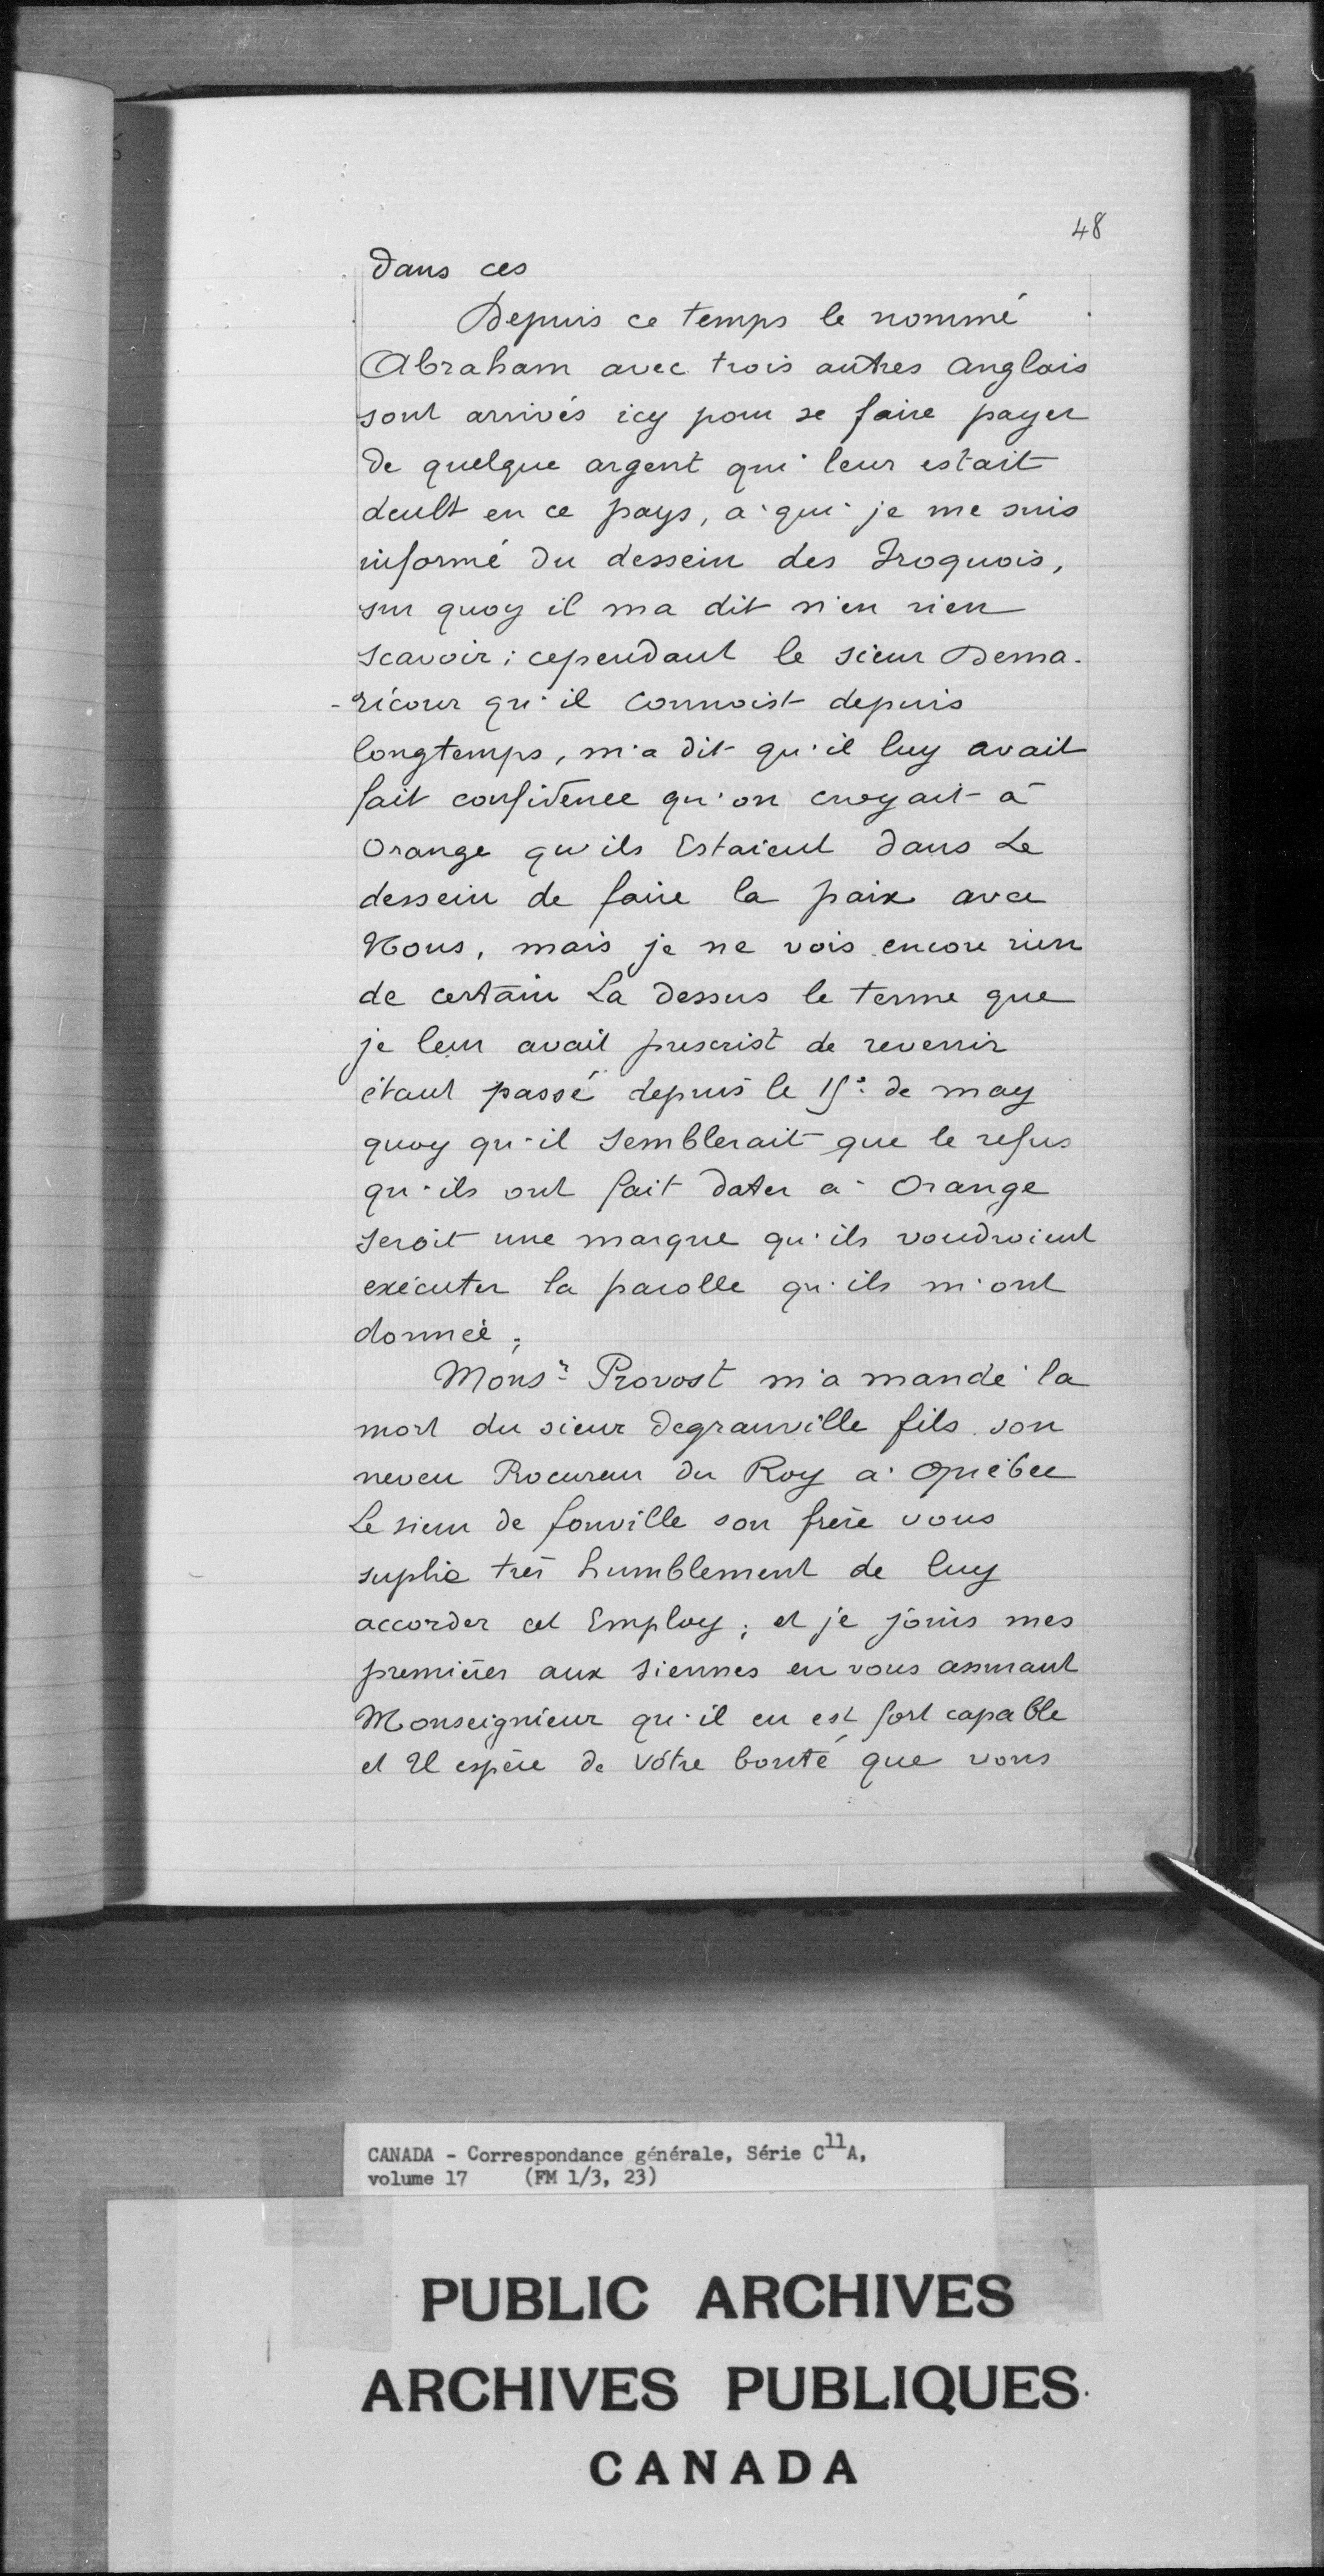 48
dans ces
Depuis ce temps le nommé
Abraham avec trois autres anglais
sont arrivés icy pour se faire payer
de quelque argent qui leur estait
deult en ce pays, a qui je me suis
informé du dessein des Iroquois,
sur quoy il ma dit n'en rien
scavoir; cependant le sieur Dema-
-ricour qu'il connoist depuis
longtemps, m'a dit qu'il luy avait
fait confidence qu'on croyait à
Orange qu'ils Estaient dans Le
dessein de faire la paix avec
Nous, mais je ne vois encore rien
de certain La dessus le terme que
je leur avait prescrist de revenir
étant passé depuis le 15e de may
quoy qu'il semblerait que le refus
qu'ils ont fait dater a Orange
seroit une marque qu'ils voudroient
exécuter la parolle qu'ils m'ont
donnée;
Monsr Provost m'a mandé la
mort du sieur degranville fils son
neveu Procureur du Roy a Québec
Le sieur de fonville son frère vous
suplie très humblement de luy
accorder cet Employ; et je joins mes
premières aux siennes en vous assurant
Monseignieur qu'il en est fort capable
et Il espère de vôtre bonté que vous
CANADA - Correspondance générale, Série C11A,
volume 17 (FM 1/3, 23)
PUBLIC ARCHIVES
ARCHIVES PUBLIQUES
CANADA